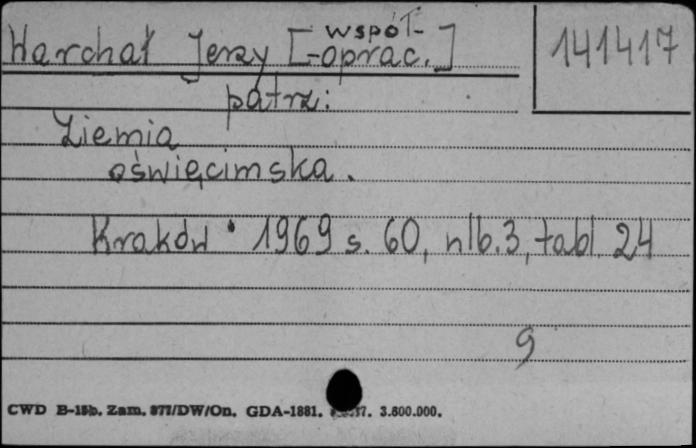 Warchał Jerzy [współ-
-oprac.]
141417
patrz:
Ziemia
oświęcimska.
Kraków 1969 s. 60, nlb. 3, tabl 24
9
CWD B-15b. Zam. 877/DW/On. GDA-1881. 3.600.000.